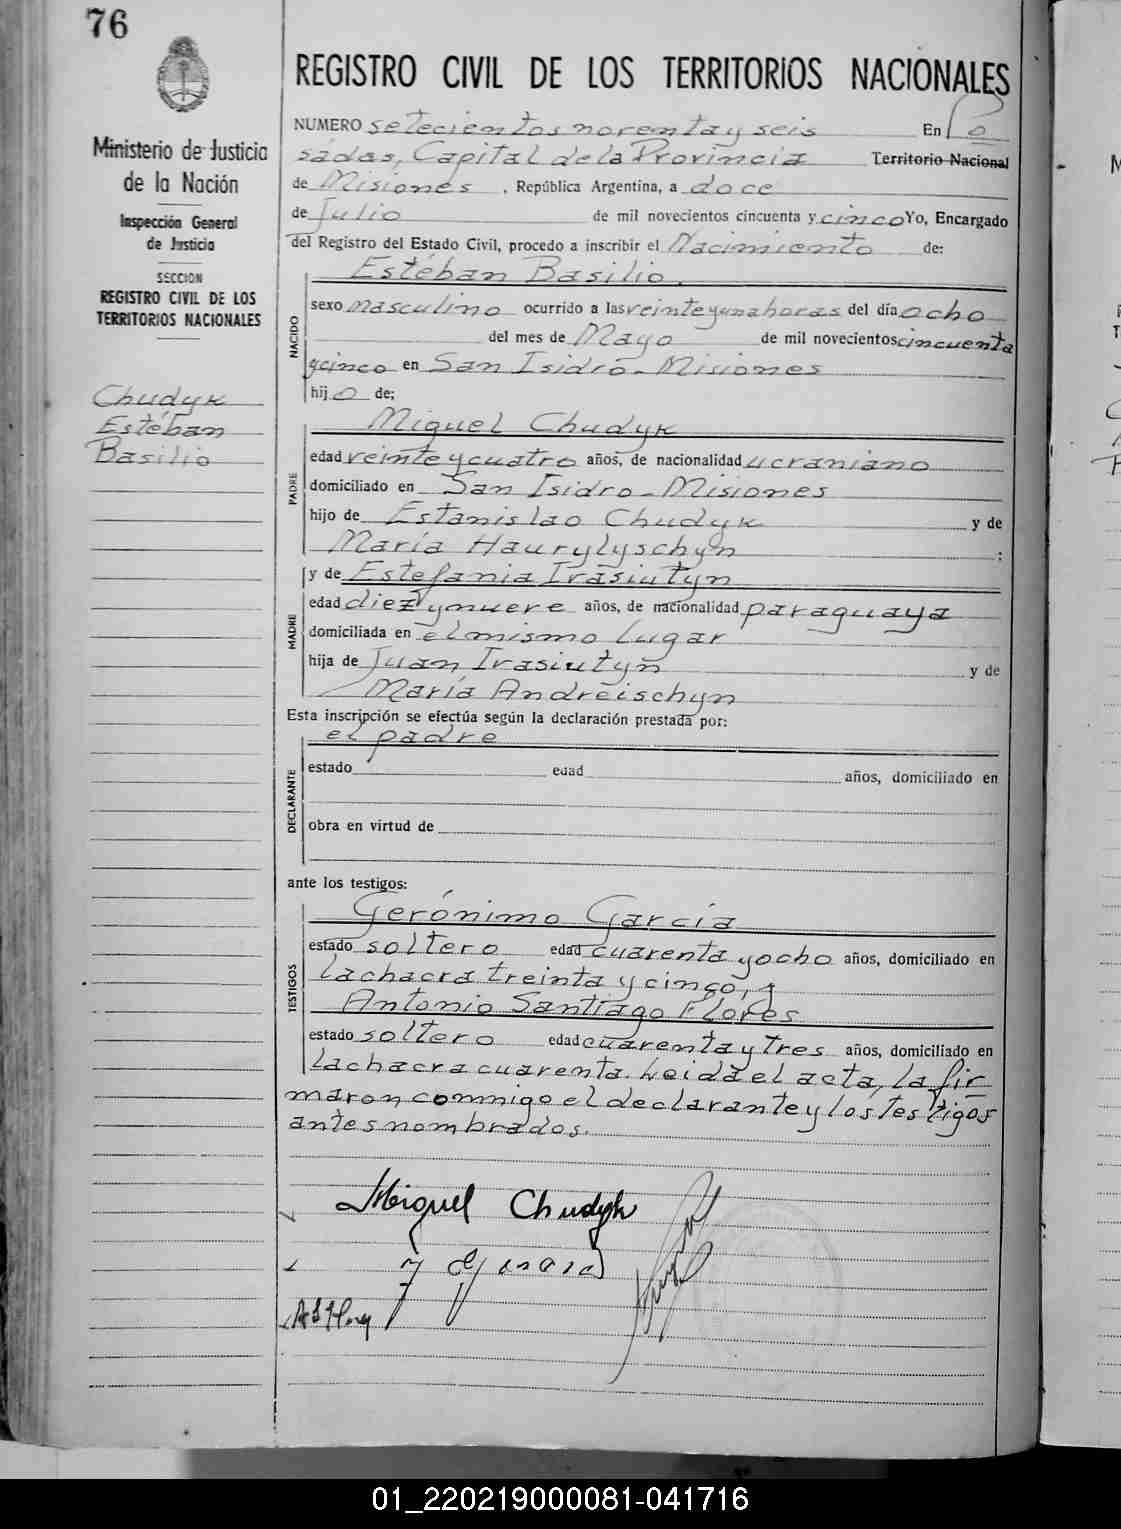 76
Ministerio de Justicia
de la Nación
Inspección General
de Justicia
SECCION
REGISTRO CIVIL DE LOS
TERRITORIOS NACIONALES
Chudyk
Estéban
Basilio
REGISTRO CIVIL DE LOS TERRITORIOS NACIONALES
NUMERO setecientos noventa y seis En Po
sadas, Capital de la Provincia Territorio Nacional
de Misiones, República Argentina, a doce
de Julio de mil novecientos cincuenta y cinco Yo, Encargado
del Registro del Estado Civil, procedo a inscribir el Nacimiento de:
Estéban Basilio.
NACIDO
sexo masculino ocurrido a las veinte y una horas del día ocho
del mes de Mayo de mil novecientos cincuenta
y cinco en San Isidro - Misiones
hijo de;
Miguel Chudyk
PADRE
edad veinte y cuatro años, de nacionalidad ucraniano
domiciliado en San Isidro - Misiones
hijo de Estanislao Chudyk y de
María Haurylyschyn ;
y de Estefania Irasiutyn
MADRE
edad diez y nueve años, de nacionalidad paraguaya
domiciliada en el mismo lugar
hija de Juan Irasiutyn y de
María Andreischyn
Esta inscripción se efectúa según la declaración prestada por:
el padre
DECLARANTE
estado edad años, domiciliado en
obra en virtud de
ante los testigos:
Gerónimo García
TESTIGOS
estado soltero edad cuarenta y ocho años, domiciliado en
la chacra treinta y cinco, y
Antonio Santiago Flores
estado soltero edad cuarenta y tres años, domiciliado en
la chacra cuarenta. Leida el acta, la fir
maron conmigo el declarante y los testigos
antes nombrados.
Miguel Chudyk
01_220219000081-041716